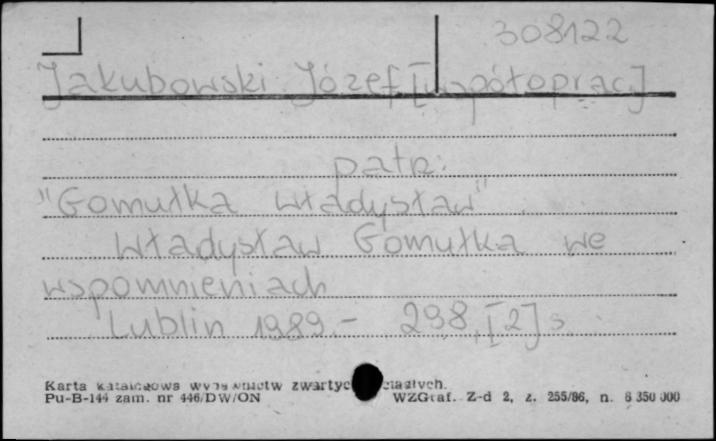 308122
Jakubowski Józef [współoprac.]
patrz:
"Gomułka Władysław"
Władysław Gomułka we
wspomnieniach
Lublin 1989.- 298,[2] s.
Karta katalogowa wydawnictw zwartych
Pu-B-144 zam. nr 446/DW/ON WZGraf. Z-d 2, z. 255/86, n. 6 350 000